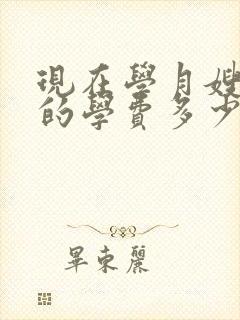 現在學月嫂
的學費多少
畢東麗